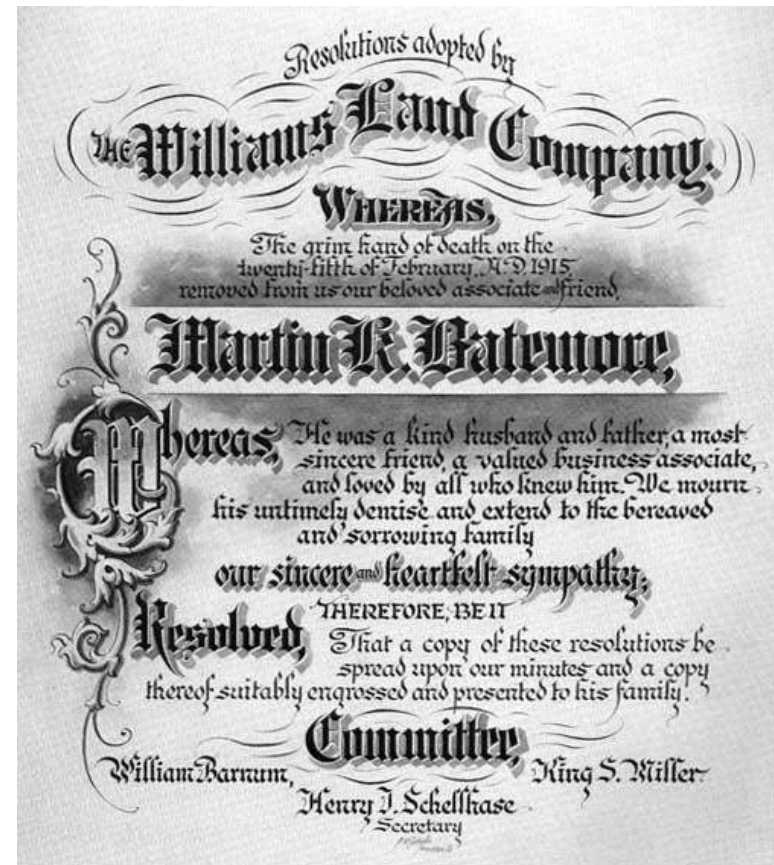 Resolutions adopted by
THE Williams Land Company.
WHEREAS,
The grim hand of death on the
twenty-fifth of February, A.D. 1915,
removed from us our beloved associate and friend,
Martin K. Batemore,
Whereas, He was a kind husband and father, a most
sincere friend, a valued business associate,
and loved by all who knew him. We mourn
his untimely demise and extend to the bereaved
and sorrowing family
our sincere and heartfelt sympathy;
THEREFORE, BE IT
Resolved, That a copy of these resolutions be
spread upon our minutes and a copy
thereof suitably engrossed and presented to his family.
Committee,
William Barnum, King S. Miller
Henry J. Schellhase
Secretary